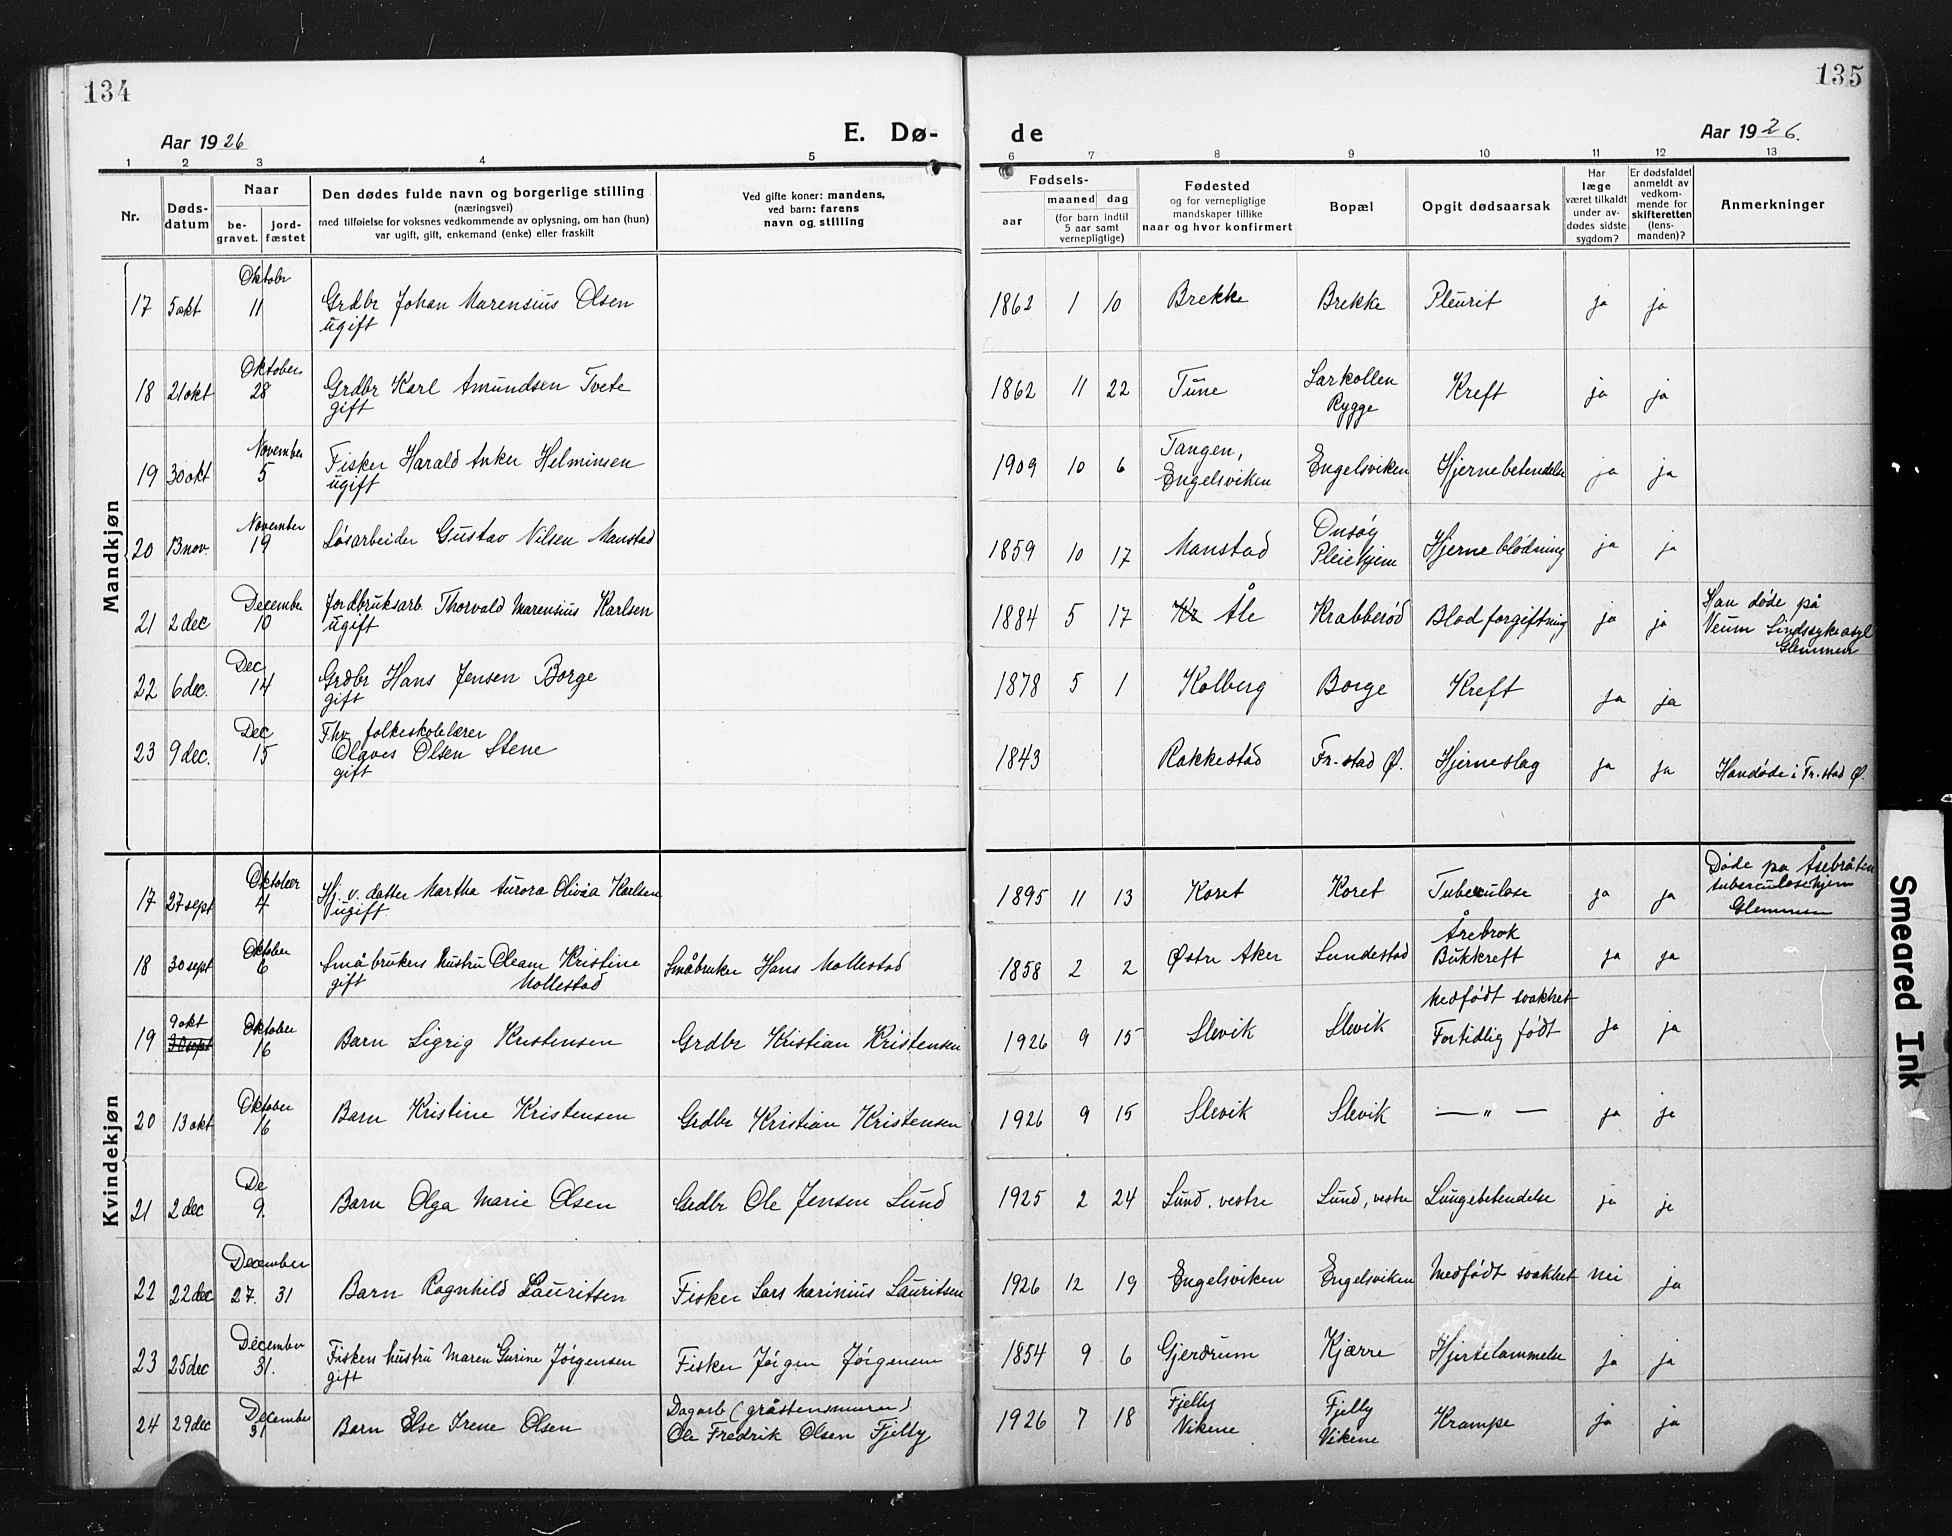 134
135
Aar 1926
E. Dø-
de
Aar 1926.
1 2 3 4 5 6 7 8 9 10 11 12 13
Nr.
Døds-
datum
Naar
be-
gravet.
jord-
fæstet
Den dødes fulde navn og borgerlige stilling
(næringsvei)
med tilføielse for voksnes vedkommende av oplysning, om han (hun)
var ugift, gift, enkemand (enke) eller fraskilt
Ved gifte koner: mandens,
ved barn: farens
navn og stilling
Fødsels-
aar
maaned dag
(for barn indtil
5 aar samt
vernepligtige)
Fødested
og for vernepligtige
mandskaper tillike
naar og hvor konfirmert
Bopæl
Opgit dødsaarsak
Har
læge
været tilkaldt
under av-
dødes sidste
sygdom?
Er dødsfaldet
anmeldt av
vedkom-
mende for
skifteretten
(lens-
manden)?
Anmerkninger
Mandkjøn
Oktobr
17 5 okt 11 Grdbr Johan Marensius Olsen 1862 1 10 Brekke Brekke Pleurit ja ja
ugift
Oktober
18 21 okt 28 Grdbr Karl Amundsen Tvete 1862 11 22 Tune Larkollen Kreft ja ja
gift Rygge
November Tangen,
19 30 okt 5 Fisker Harald Anker Helminsen 1909 10 6 Engelsviken Engelsviken Hjernebetendelse ja ja
ugift
November Onsøy
20 13 nov. 19 Løsarbeider Gustav Nilsen Manstad 1859 10 17 Manstad Pleiehjem Hjerneblødning ja ja
December Han døde på
21 2 dec 10 Jordbruksarb. Thorvald Marensius Karlsen 1884 5 17 Kr Åle Krabberød Blodforgiftning ja ja Veum Sindssykeasyl
ugift Glemmen
Dec
22 6 dec. 14 Grdbr Hans Jensen Borge 1878 5 1 Kolberg Borge Kreft ja ja
gift
Dec Fhv. folkeskolelærer
23 9 dec. 15 Olaves Olsen Stene 1843 Rakkestad Fr-stad Ø. Hjerneslag ja ja Han døde i Fr.stad Ø.
gift
Kvindekjøn
Oktober Døde på Årebråten
17 27 sept 4 Hj. v. datter Martha Aurora Olivia Karlsen 1895 11 13 Koret Koret Tuberculose ja ja tuberculosehjem
ugift Glemmen
Oktober Årebrok
18 30 sept 6 Småbrukers hustru Oleane Kristine Småbruker Hans Mollestad 1858 2 2 Østre Aker Lundestad Bukkreft ja ja
gift Mollestad
9 okt Oktober Medfødt svakhet
19 30 sept 16 Barn Sigrig Kristensen Grdbr Kristian Kristensen 1926 9 15 Slevik Slevik Fortidlig født ja ja
Oktober
20 13 okt 16 Barn Kristine Kristensen Grdbr Kristian Kristensen 1926 9 15 Slevik Slevik — " — ja ja
De
21 2 dec 9. Barn Olga Marie Olsen Grdbr Ole Jensen Lund 1925 2 24 Lund, vestre Lund, vestre Lungebetendelse ja ja
December
22 22 dec 27. 31 Barn Ragnhild Lauritsen Fisker Lars Marinius Lauritsen 1926 12 19 Engelsviken Engelsviken Medfødt svakhet nei ja
December
23 25 dec 31. Fiskers hustru Maren Gurine Jørgensen Fisker Jørgen Jørgensen 1854 9 6 Gjerdrum Kjærre Hjertelammelse ja ja
gift
December Dagarb (gråstensmurer) Fjelly Fjelly
24 29 dec 31 Barn Else Irene Olsen Ole Fredrik Olsen Fjelly 1926 7 18 Vikene Vikene Krampe ja ja
Smeared Ink